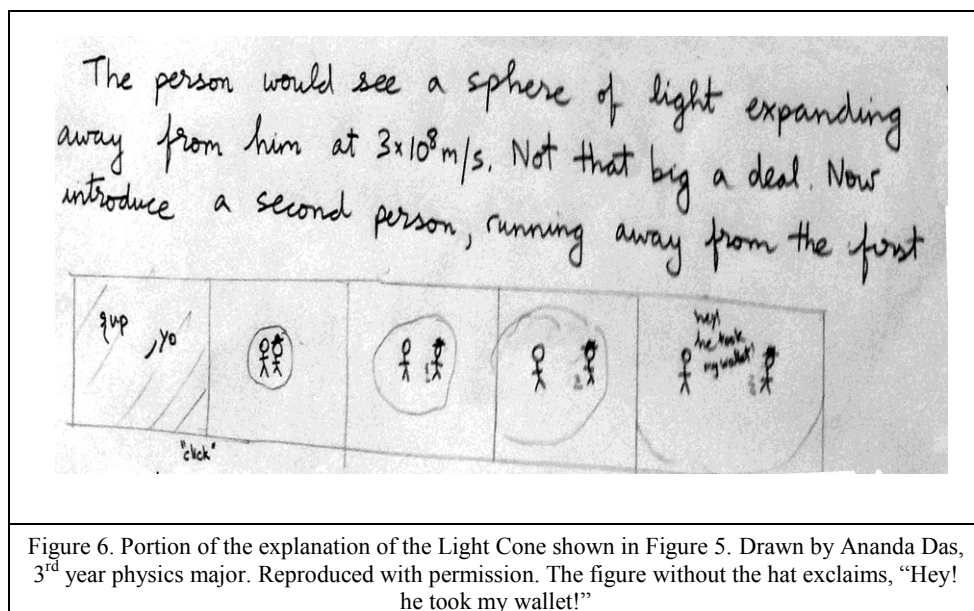 The person would see a sphere of light expanding
away from him at 3×10⁸ m/s. Not that big a deal. Now
introduce a second person, running away from the first
sup
, yo
"click"
hey!
he took
my wallet!
Figure 6. Portion of the explanation of the Light Cone shown in Figure 5. Drawn by Ananda Das,
3rd year physics major. Reproduced with permission. The figure without the hat exclaims, “Hey!
he took my wallet!”